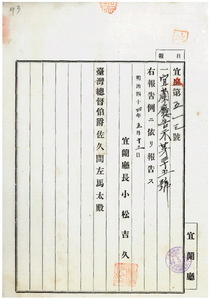 報
日
宜庶第五一三號
一宜蘭廳告示第三十五號
右報告例ニ依リ報告ス
明治四十四年五月十三日
宜蘭廳長小松吉久
臺灣總督伯爵佐久間左馬太殿
宜蘭廳